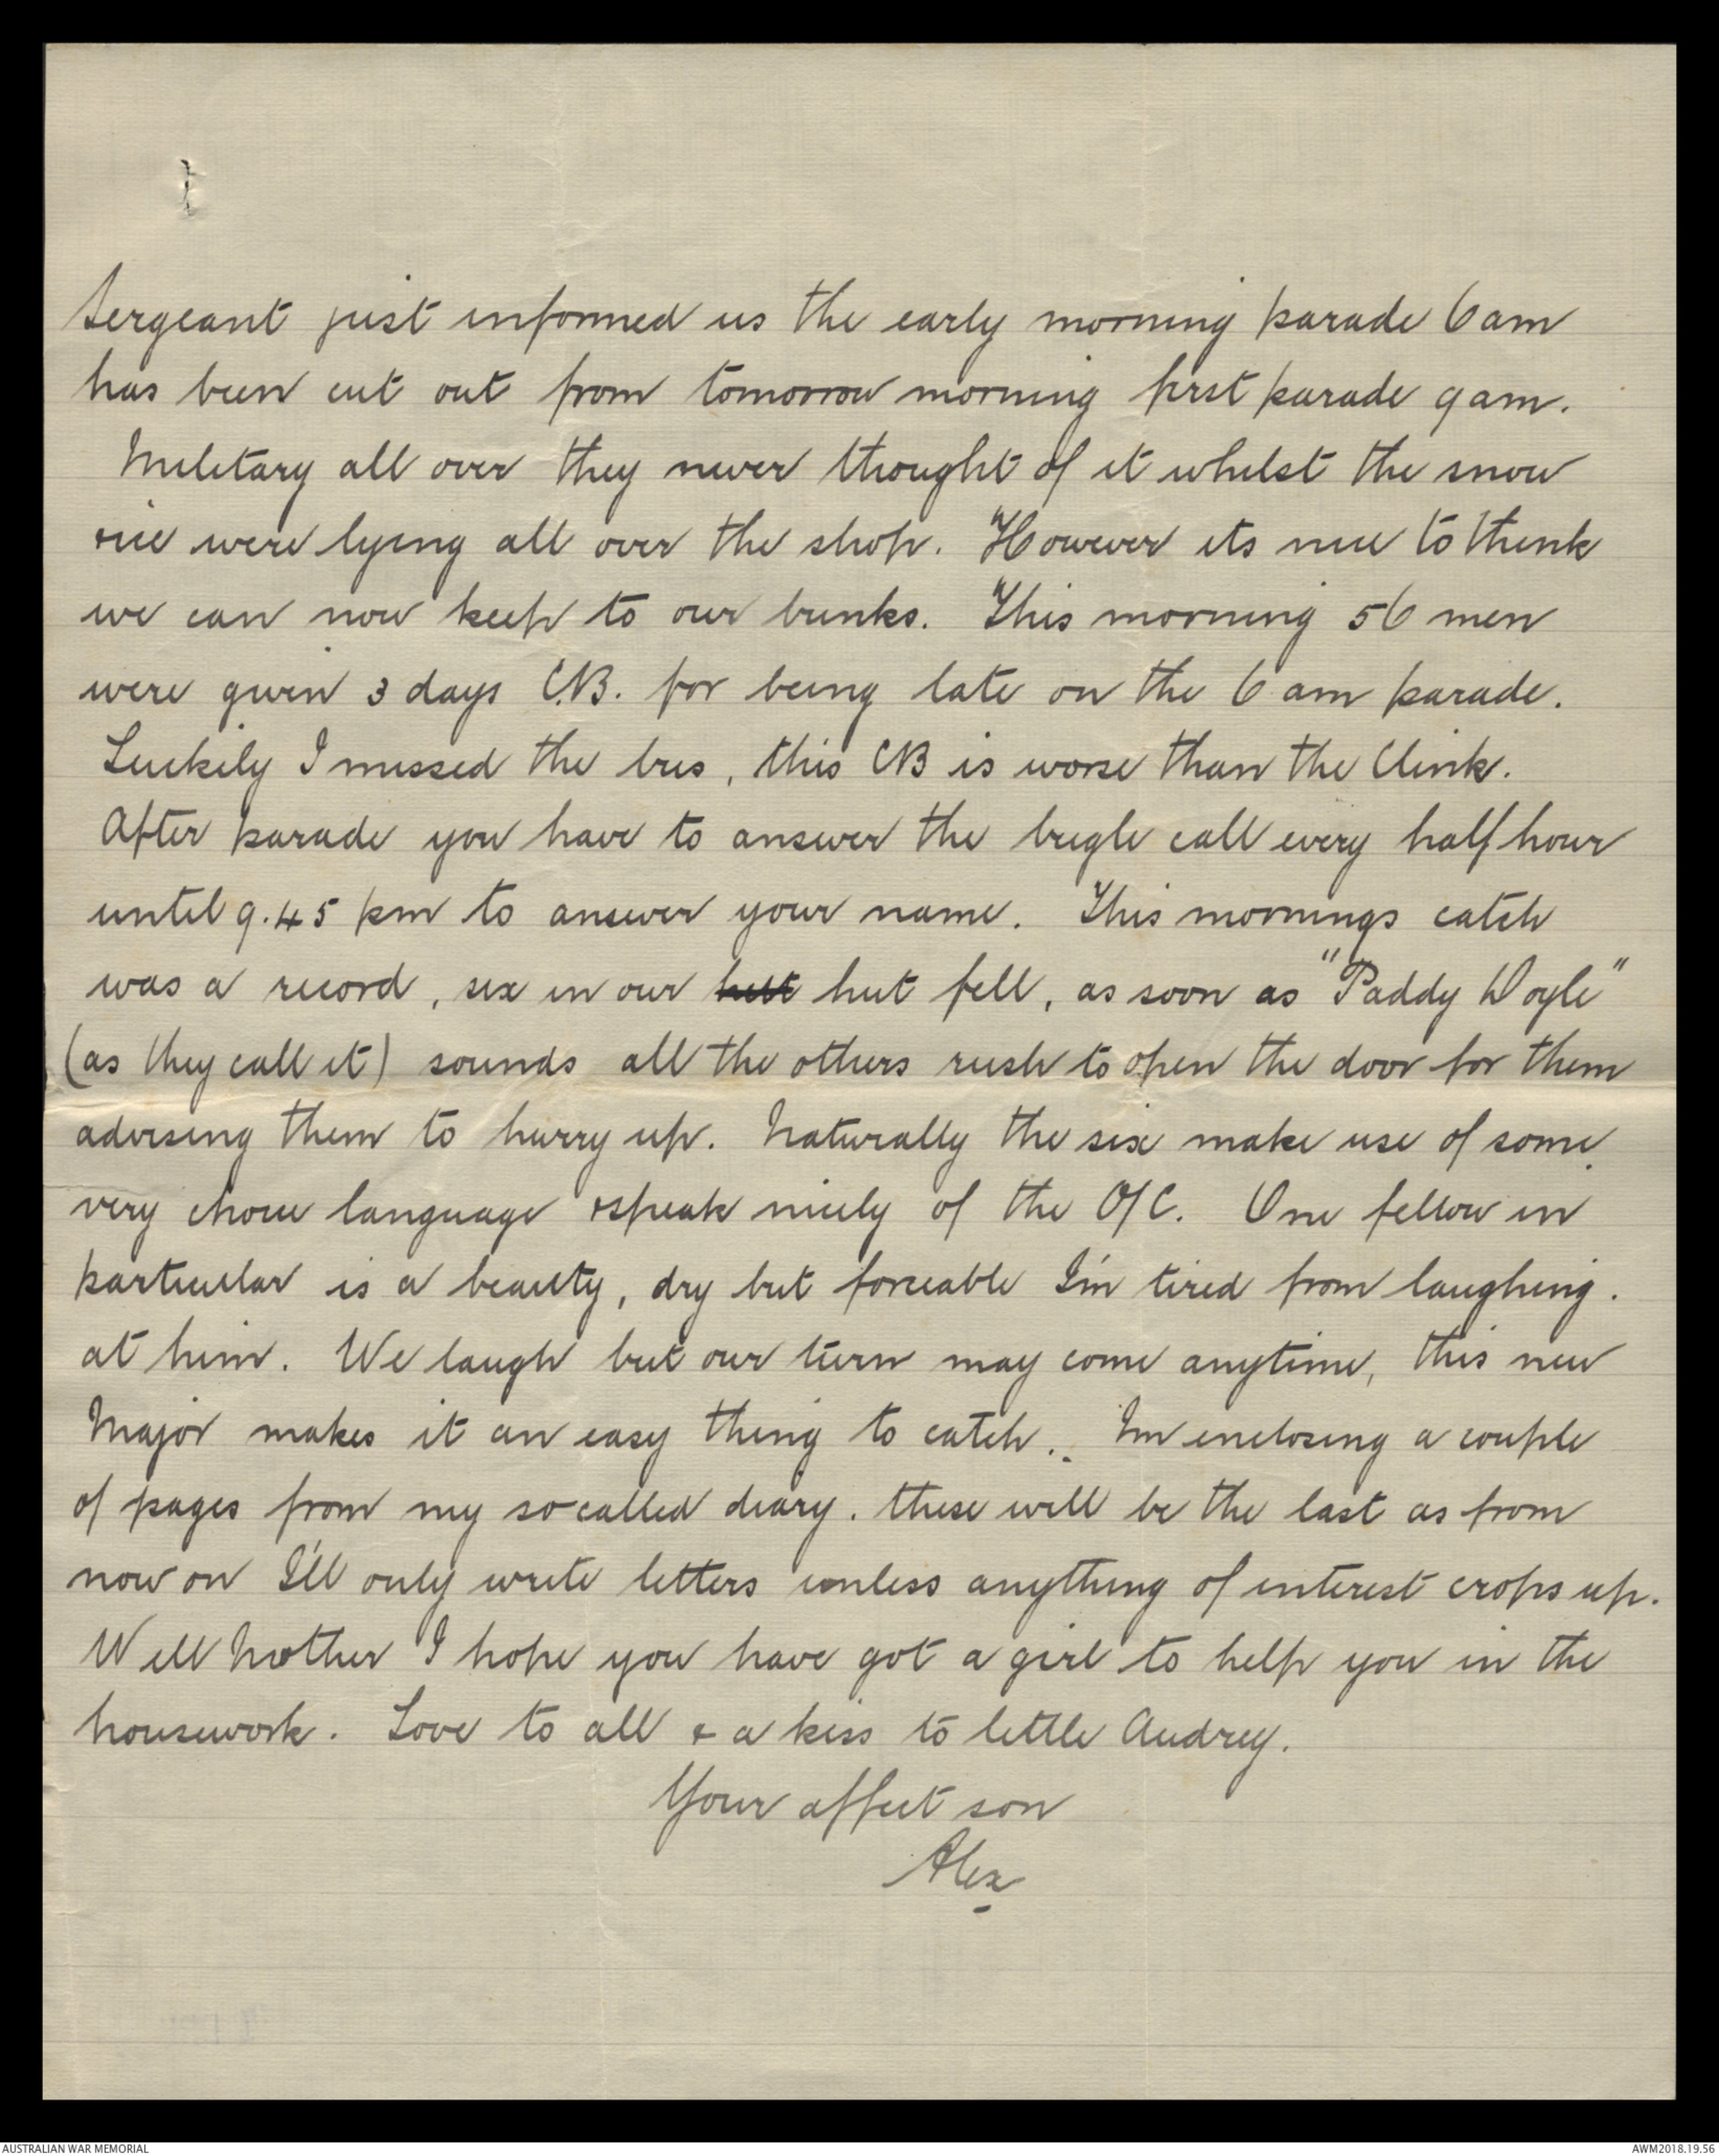 Sergeant just informed us the early morning parade 6 am
has been cut out from tomorrow morning first parade 9 am.
Military all over they never thought of it whilst the snow
& ice were lying all over the shop. However its nice to think
we can now keep to our bunks. This morning 56 men
were given 3 days C.B. for being late on the 6 am parade.
Luckily I missed the bus, this CB is worse than the Clink.
After parade you have to answer the bugle call every half hour
until 9.45 pm to answer your name. This mornings catch
was a record, six in our hut fell, as soon as "Paddy Doyle"
(as they call it) sounds all the others rush to open the door for them
advising them to hurry up. Naturally the six make use of some
very choice language & speak nicely of the O/C. One fellow in
particular is a beauty, dry but forceable I'm tired from laughing.
at him. We laugh but our turn may come anytime, this new
Major makes it an easy thing to catch. I'm enclosing a couple
of pages from my so-called diary. these will be the last as from
now on I'll only write letters unless anything of interest crops up.
Well Mother I hope you have got a girl to help you in the
housework. Love to all & a kiss to little Audrey.
Your affect son
Alex
AUSTRALIAN WAR MEMORIAL
AWM2018.19.56